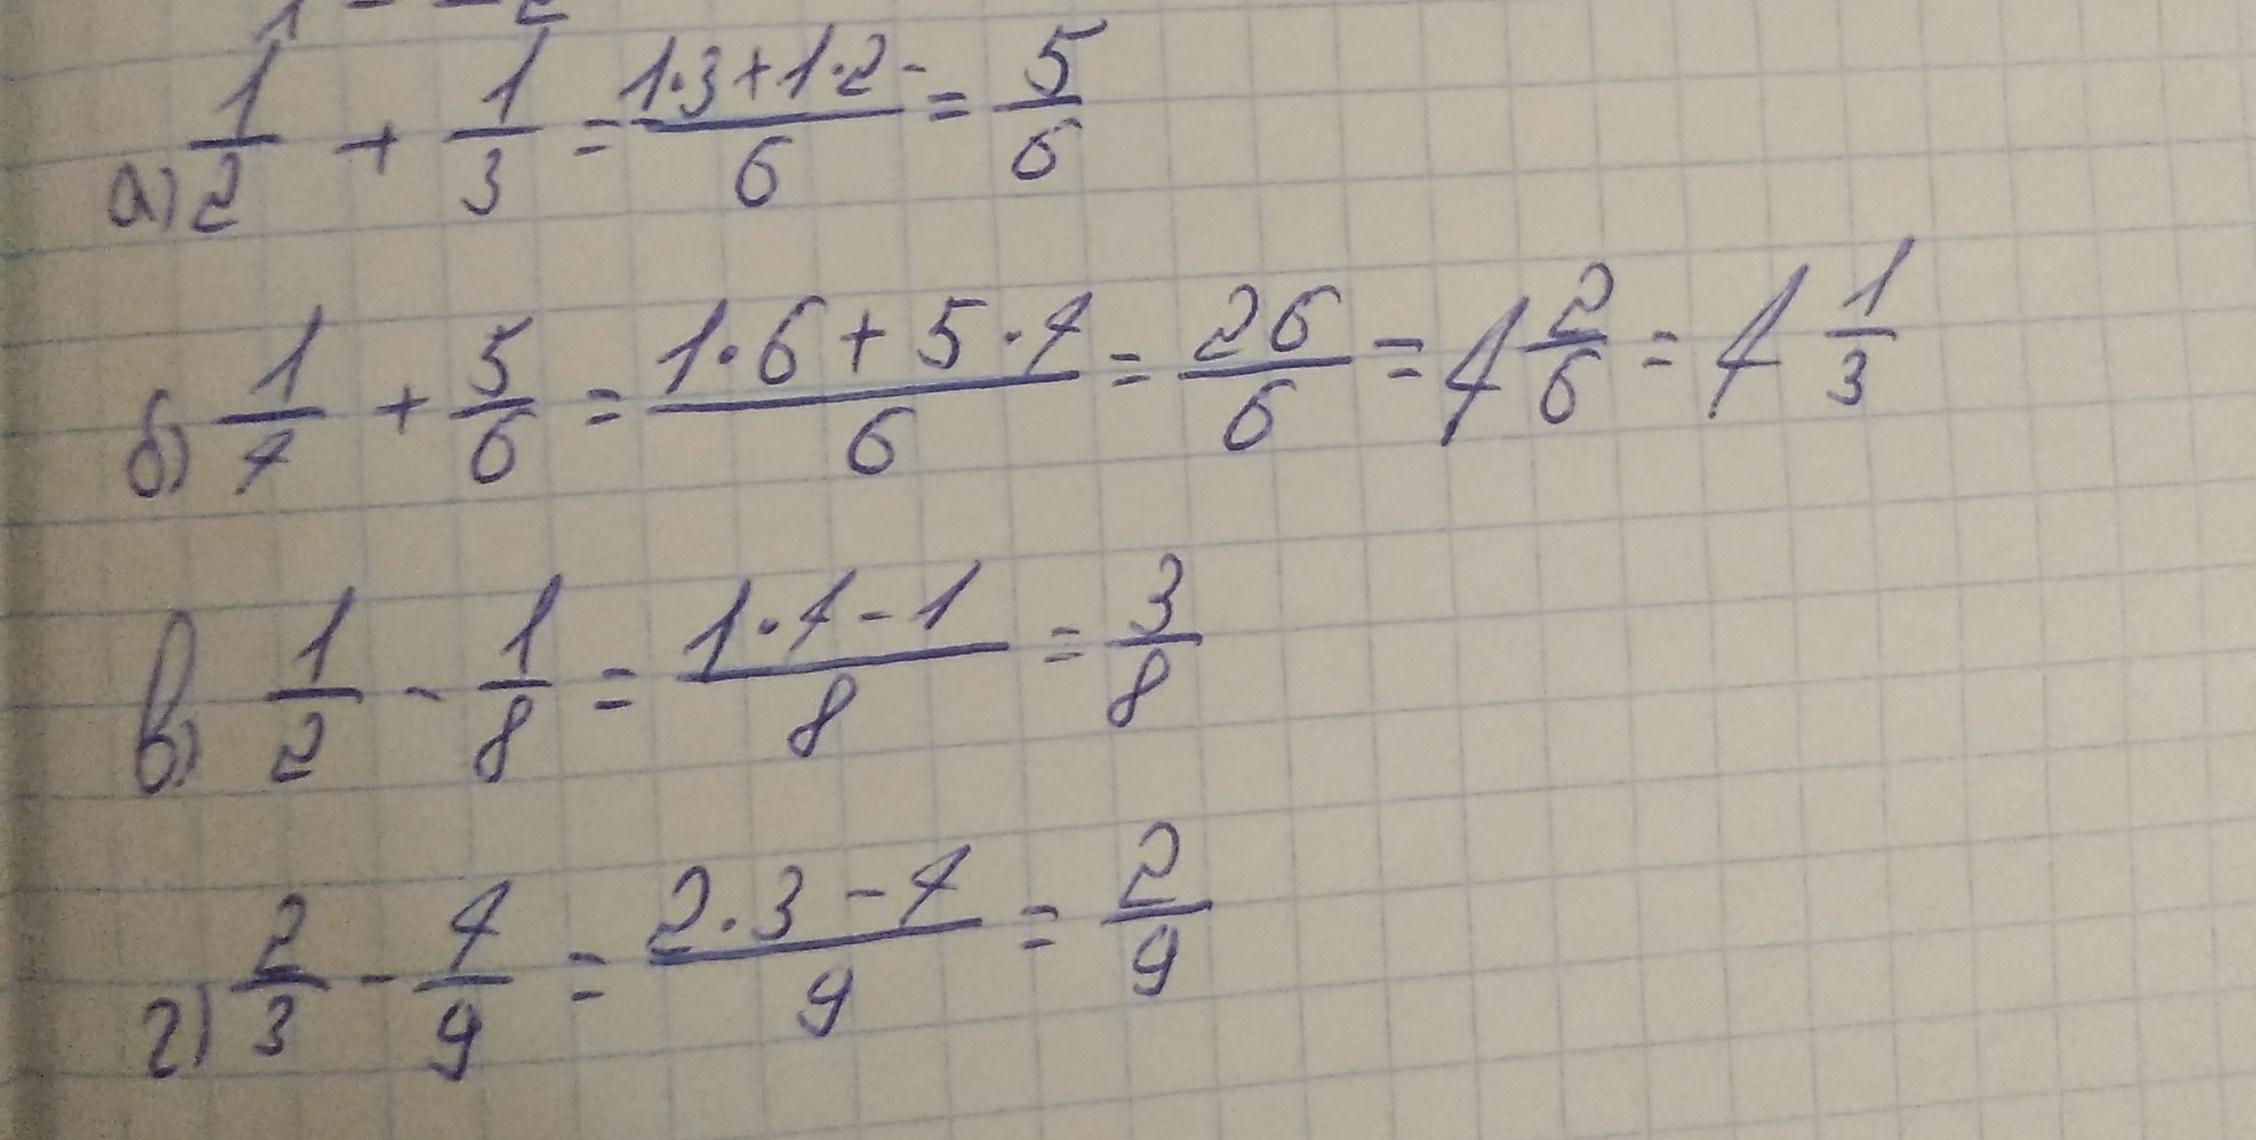 а) 1/2 + 1/3 = (1·3+1·2)/6 = 5/6
б) 1/4 + 5/6 = (1·6+5·4)/6 = 26/6 = 4 2/6 = 4 1/3
в) 1/2 - 1/8 = (1·4-1)/8 = 3/8
г) 2/3 - 4/9 = (2·3-4)/9 = 2/9